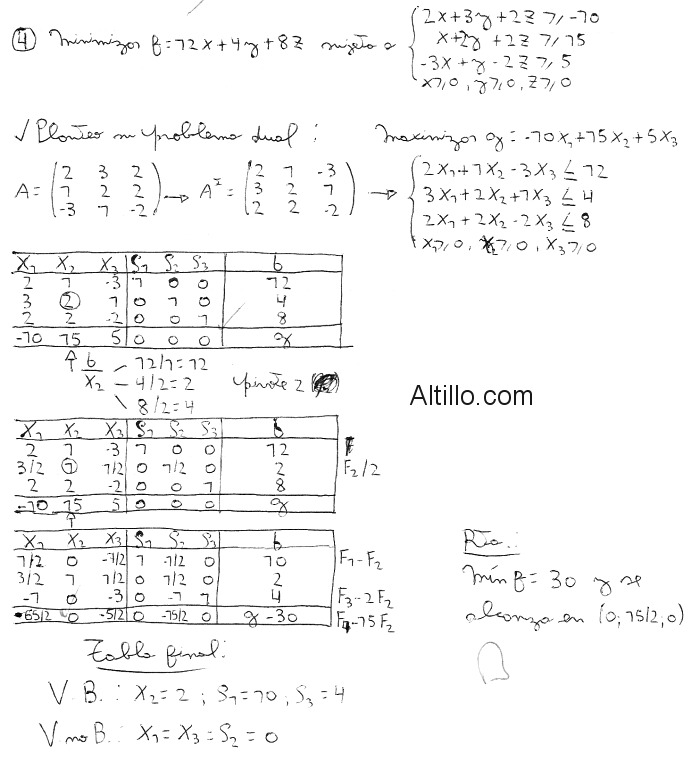 ④ Minimizar f = 12x + 4y + 8z sujeto a { 2x + 3y + 2z ≥ -10
x + 2y + 2z ≥ 15
-3x + y - 2z ≥ 5
x ≥ 0, y ≥ 0, z ≥ 0
✓ Planteo su problema dual: Maximizar g = -10x₁ + 15x₂ + 5x₃
A = ( 2 3 2 / 1 2 2 / -3 1 -2 ) → Aᵗ = ( 2 1 -3 / 3 2 1 / 2 2 -2 ) → { 2x₁ + 1x₂ - 3x₃ ≤ 12
3x₁ + 2x₂ + 1x₃ ≤ 4
2x₁ + 2x₂ - 2x₃ ≤ 8
x₁ ≥ 0, x₂ ≥ 0, x₃ ≥ 0
X₁ X₂ X₃ S₁ S₂ S₃ b
2 1 -3 1 0 0 12
3 ② 1 0 1 0 4
2 2 -2 0 0 1 8
-10 15 5 0 0 0 g
↑ b/X₂ 12/1 = 12
4/2 = 2 pivote 2
8/2 = 4
Altillo.com
X₁ X₂ X₃ S₁ S₂ S₃ b
2 1 -3 1 0 0 12
3/2 ① 1/2 0 1/2 0 2 F₂/2
2 2 -2 0 0 1 8
-10 15 5 0 0 0 g
↑
X₁ X₂ X₃ S₁ S₂ S₃ b
1/2 0 -7/2 1 -1/2 0 10 F₁-F₂
3/2 1 1/2 0 1/2 0 2
-1 0 -3 0 -1 1 4 F₃-2F₂
-65/2 0 -5/2 0 -15/2 0 g-30 F₄-15F₂
Rta.:
Mín f = 30 y se
alcanza en (0, 15/2, 0)
Tabla final:
V.B.: X₂ = 2; S₁ = 10; S₃ = 4
V. no B.: X₁ = X₃ = S₂ = 0